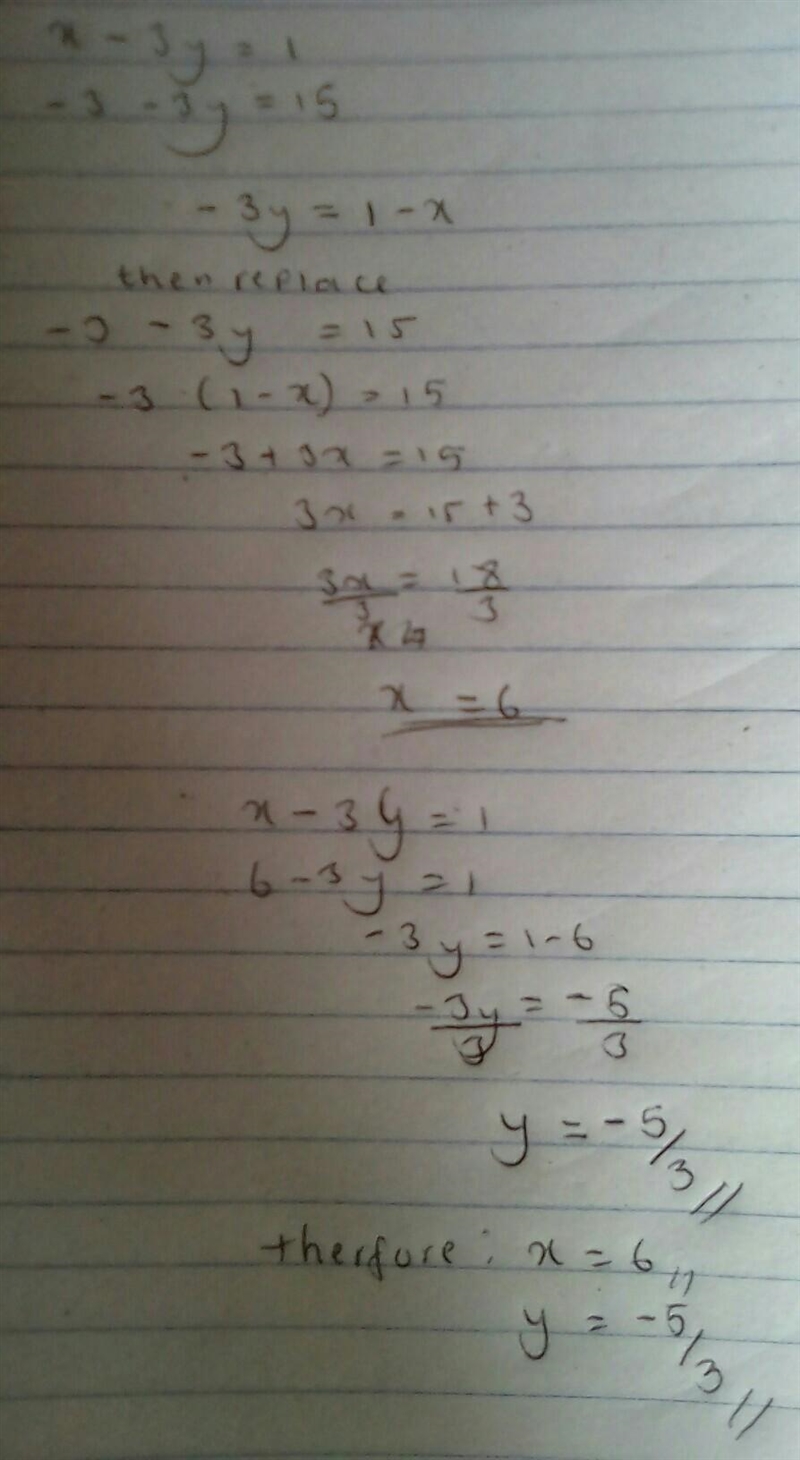 x - 3y = 1
-3 - 3y = 15
-3y = 1 - x
then replace
-3 - 3y = 15
-3 (1 - x) = 15
-3 + 3x = 15
3x = 15 + 3
3x/3 = 18/3
x = 6
x - 3y = 1
6 - 3y = 1
-3y = 1 - 6
-3y/3 = -5/3
y = -5/3 //
therfore : x = 6 ,,
y = -5/3 //